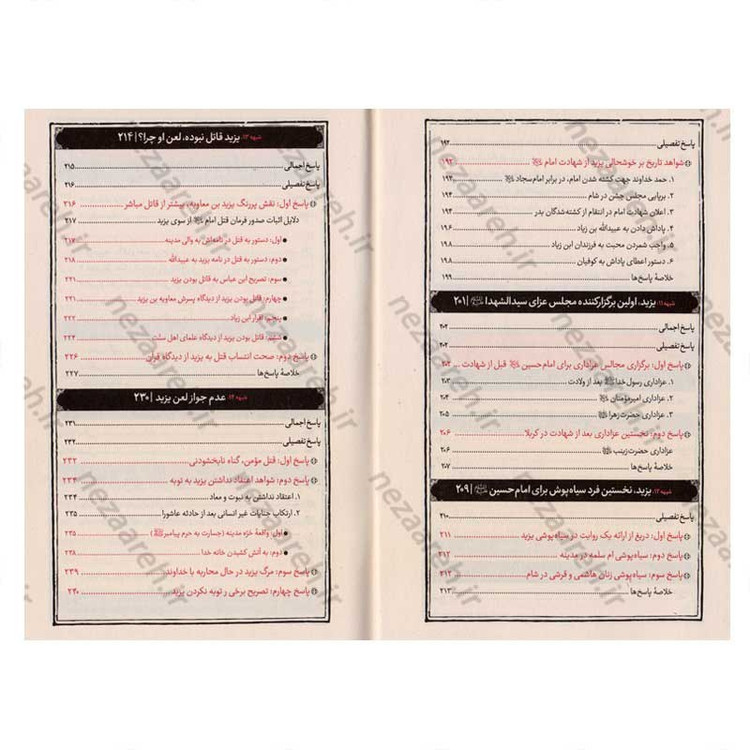 پاسخ تفصیلی ۱۹۲
شواهد تاریخ بر خوشحالی یزید از شهادت امام ۱۹۲
۱. حمد خداوند جهت کشته شدن امام، در برابر امام سجاد ۱۹۳
۲. برپایی مجلس جشن در شام ۱۹۴
۳. اعلان شهادت امام در انتقام از کشته‌شدگان بدر ۱۹۴
۴. پاداش دادن به عبیدالله بن زیاد ۱۹۶
۵. واجب شمردن محبت به فرزندان ابن زیاد ۱۹۸
۶. دستور اعطای پاداش به کوفیان ۱۹۸
خلاصۀ پاسخ‌ها ۱۹۹
شبهه ۱۱: یزید، اولین برگزارکننده مجلس عزای سیدالشهدا | ۲۰۱
پاسخ اجمالی ۲۰۲
پاسخ تفصیلی ۲۰۲
پاسخ اول: برگزاری مجالس عزاداری برای امام حسین قبل از شهادت ۲۰۳
۱. عزاداری رسول خدا بعد از ولادت ۲۰۳
۲. عزاداری امیرمؤمنان ۲۰۴
۳. عزاداری حضرت زهرا ۲۰۵
پاسخ دوم: نخستین عزاداری بعد از شهادت در کربلا ۲۰۶
عزاداری حضرت زینب ۲۰۶
خلاصۀ پاسخ‌ها ۲۰۷
شبهه ۱۲: یزید، نخستین فرد سیاه‌پوش برای امام حسین | ۲۰۹
پاسخ تفصیلی ۲۱۰
پاسخ اول: دریغ از ارائه یک روایت در سیاه‌پوشی یزید ۲۱۱
پاسخ دوم: سیاه‌پوشی ام سلمه در مدینه ۲۱۲
پاسخ سوم: سیاه‌پوشی زنان هاشمی و قرشی در شام ۲۱۲
خلاصۀ پاسخ‌ها ۲۱۳
شبهه ۱۳: یزید قاتل نبوده، لعن او چرا؟ | ۲۱۴
پاسخ اجمالی ۲۱۵
پاسخ تفصیلی ۲۱۶
پاسخ اول: نقش پررنگ یزید بن معاویه، بیشتر از قاتل مباشر ۲۱۶
دلایل اثبات صدور فرمان قتل امام از سوی یزید ۲۱۷
اول: دستور به قتل در نامه‌اش به والی مدینه ۲۱۷
دوم: دستور به قتل در نامه یزید به عبیدالله ۲۱۸
سوم: تصریح ابن عباس به قاتل بودن یزید ۲۲۱
چهارم: قاتل بودن یزید از دیدگاه پسرش معاویه بن یزید ۲۲۱
پنجم: اقرار ابن زیاد ۲۲۲
ششم: قاتل بودن یزید از دیدگاه علمای اهل سنت ۲۲۴
پاسخ دوم: صحت انتساب قتل به یزید از دیدگاه قرآن ۲۲۶
خلاصۀ پاسخ‌ها ۲۲۷
شبهه ۱۴: عدم جواز لعن یزید | ۲۳۰
پاسخ اجمالی ۲۳۱
پاسخ تفصیلی ۲۳۲
پاسخ اول: قتل مؤمن، گناه نابخشودنی ۲۳۲
پاسخ دوم: شواهد اعتقاد نداشتن یزید به توبه ۲۳۴
۱. اعتقاد نداشتن به نبوت و معاد ۲۳۴
۲. ارتکاب جنایات غیر انسانی بعد از حادثه عاشورا ۲۳۵
اول: واقعۀ حَرّه مدینه (جسارت به حرم پیامبر) ۲۳۵
دوم: به آتش کشیدن خانه خدا ۲۳۸
پاسخ سوم: مرگ یزید در حال محاربه با خداوند ۲۳۹
پاسخ چهارم: تصریح برخی بر توبه نکردن یزید ۲۴۰
nezaareh.ir